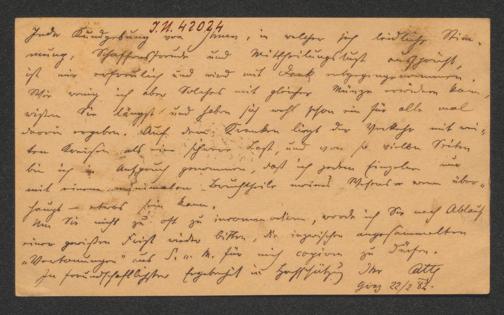 I.N. 42024
Jede Kundgebung von Ihnen, in welcher sich leidliche Stim-
mung, Schaffensfreude und Mittheilungslust ausspricht,
ist mir erfreulich und wird mit Dank entgegengenommen.
Wie wenig ich aber Solches mit gleicher Münze erwidern kann,
wissen Sie längst und haben sich wohl schon ein für alle mal
darein ergeben. Auf dem Kranken liegt der Verkehr mit wei-
ten Kreisen als eine schwere Last, und von so vielen Seiten
bin ich in Anspruch genommen, daß ich jedem Einzelnen nur
mit einem minimalen Bruchtheile meines Wesens – wenn über-
haupt – etwas sein kann.
Um Sie nicht zu oft zu incommodiren, werde ich Sie nach Ablauf
einer gewissen Frist wieder bitten, die inzwischen angesammelten
"Vertonungen" aus S. u. M. für mich copiren zu dürfen.
In freundschaftlichster Ergebenheit u Hochschätzung Ihr
Graz 22/2 82.